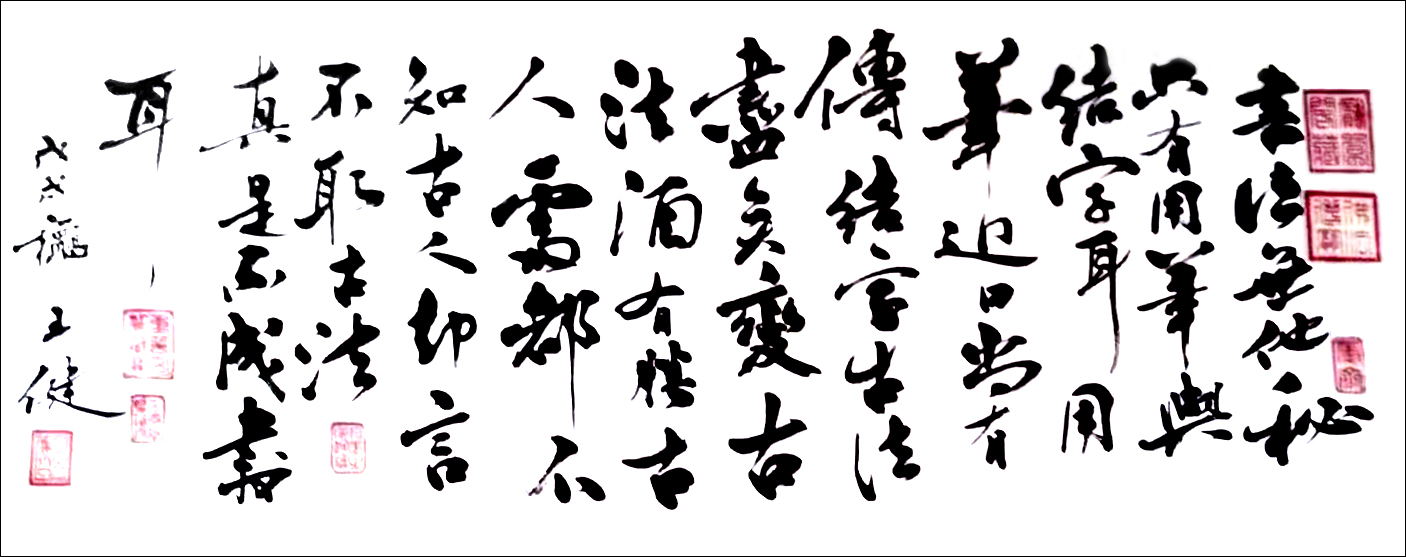 書法無他秘
只有用筆與
結字耳用
筆近日尚有
傳結字古法
盡矣變古
法須有勝古
人處都不
知古人却言
不取古法
真是不成書
耳
戊戌穐 王健